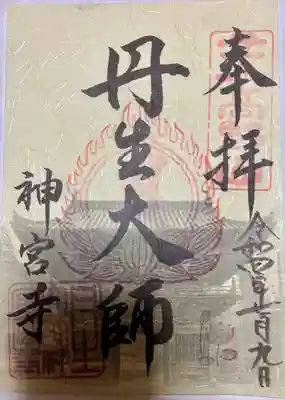 奉拝
令和四年十一月九日
丹生大師
神宮寺